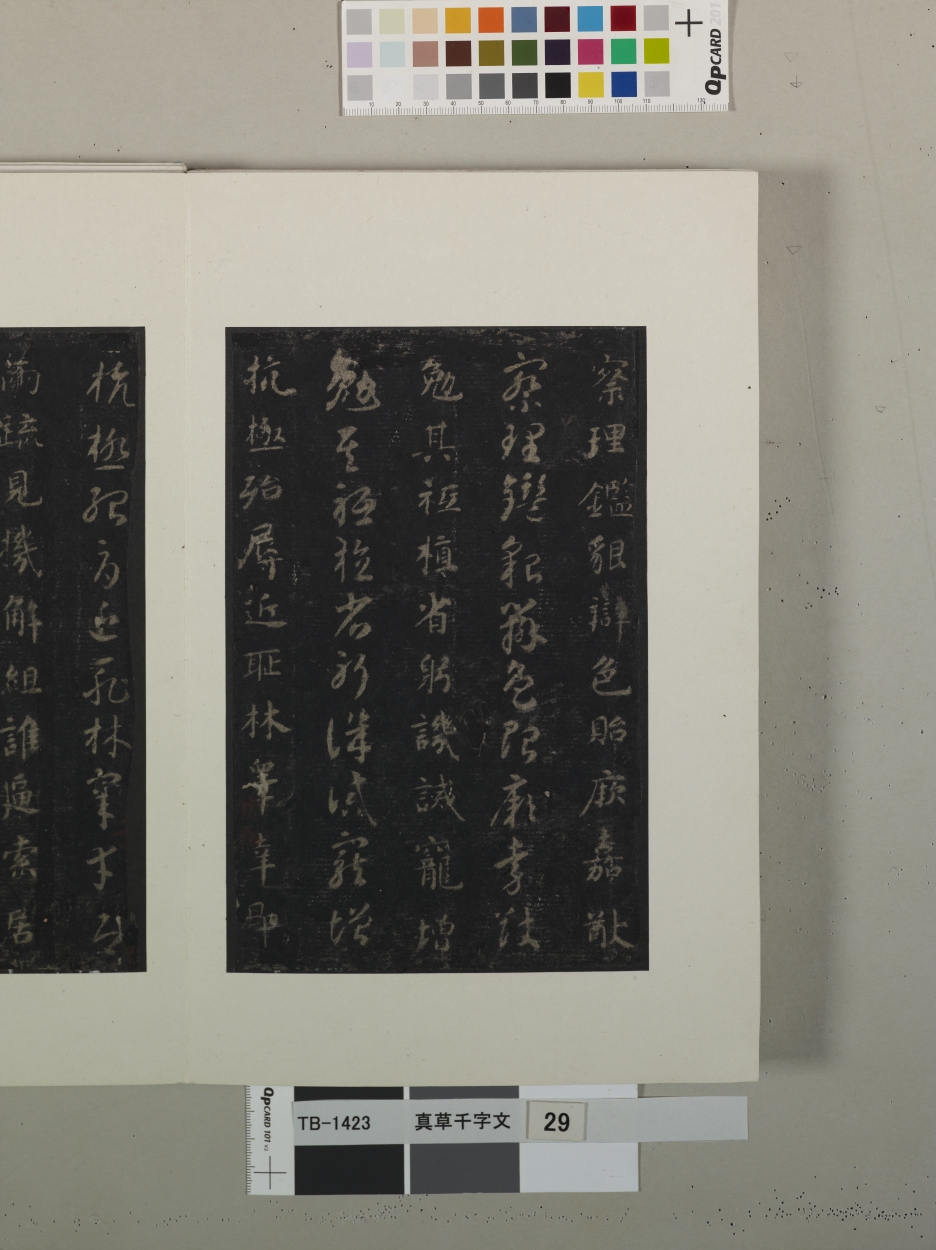 QPCARD 201
察理鑑貌辯色貽厥嘉猷
察理鑑貌辯色貽厥嘉猷
勉其祗植省躬譏誡寵增
勉其祗植省躬譏誡寵增
抗極殆辱近耻林皋幸即
抗極殆辱近耻林皋幸即
兩疏見機解組誰逼索居
QPCARD 101 v2
TB-1423 真草千字文 29